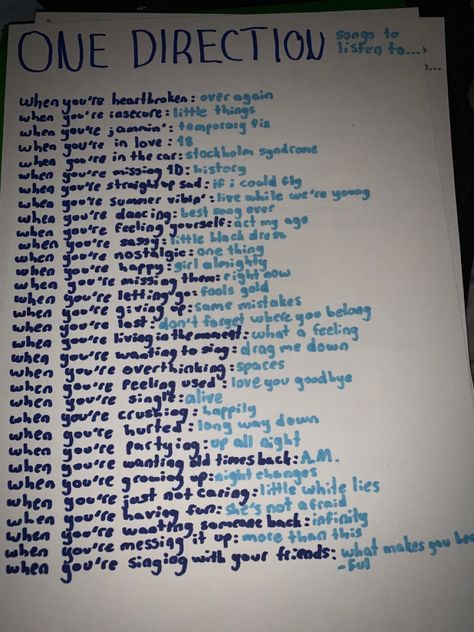 ONE DIRECTION songs to
listen to...
when you're heartbroken: over again
when you're insecure: little things
when you're jammin': temporary fix
when you're in love: 18
when you're in the car: stockholm syndrome
when you're missing 1D: history
when you're straight up sad: if i could fly
when you're summer vibin': live while we're young
when you're dancing: best song ever
when you're feeling yourself: act my age
when you're sassy: little black dress
when you're nostalgic: one thing
when you're happy: girl almighty
when you're missing them: right now
when you're letting go: fools gold
when you're giving up: same mistakes
when you're lost: don't forget where you belong
when you're living in the moment: what a feeling
when you're wanting to sing: drag me down
when you're overthinking: spaces
when you're feeling used: love you goodbye
when you're single: alive
when you're crushing: happily
when you're hurted: long way down
when you're partying: up all night
when you're wanting old times back: A.M.
when you're growing up: night changes
when you're just not caring: little white lies
when you're having fun: she's not afraid
when you're wanting someone back: infinity
when you're messing it up: more than this
when you're singing with your friends: what makes you bea